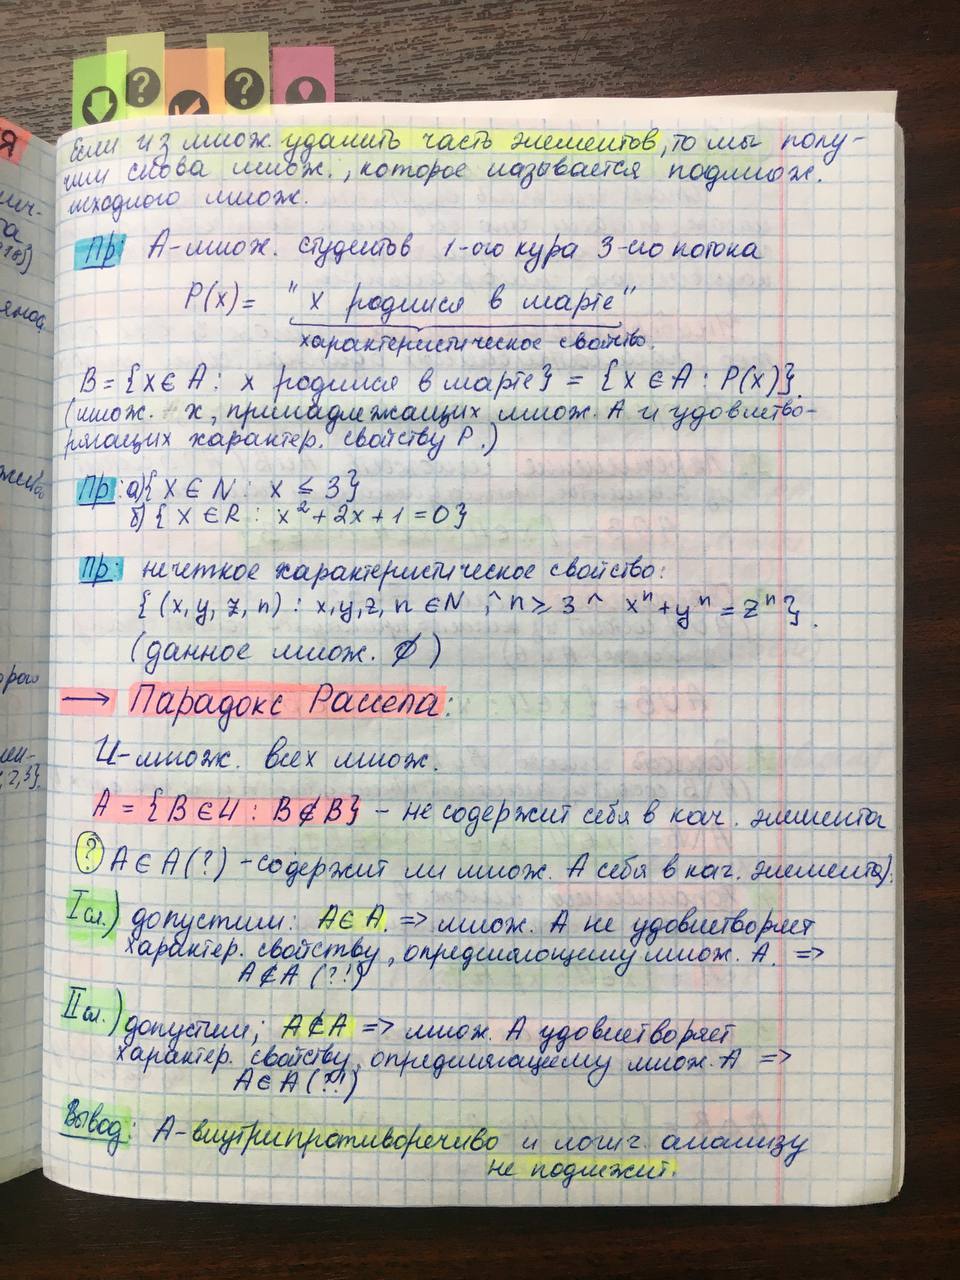 Если из множ. удалить часть элементов, то мы полу-
чим снова множ., которое называется подмнож.
исходного множ.
Пр: A-множ. студентов 1-ого кура 3-его потока
P(x)= "x родился в марте"
характеристическое свойство.
B={x∈A: x родился в марте} = {x∈A: P(x)}.
(множ. x, принадлежащих множ. A и удовлетво-
ряющих характер. свойству P.)
Пр: а){x∈N: x ≤ 3}
б){x∈R: x²+2x+1=0}
Пр: нечеткое характеристическое свойство:
{(x,y,z,n): x,y,z,n∈N ^ n≥3 ^ xⁿ+yⁿ=zⁿ}.
(данное множ. ∅)
→ Парадокс Рассела:
U-множ. всех множ.
A={B∈U: B∉B} - не содержит себя в кач. элемента
? A∈A(?) - содержит ли множ. A себя в кач. элемента).
I сл.) допустим: A∈A. => множ. A не удовлетворяет
характер. свойству, определяющему множ. A. =>
A∉A (?!)
II сл.) допустим; A∉A => множ. A удовлетворяет
характер. свойству, определяющему множ. A =>
A∈A (?!)
Вывод: A-внутрипротиворечиво и логич. анализу
не подлежит.